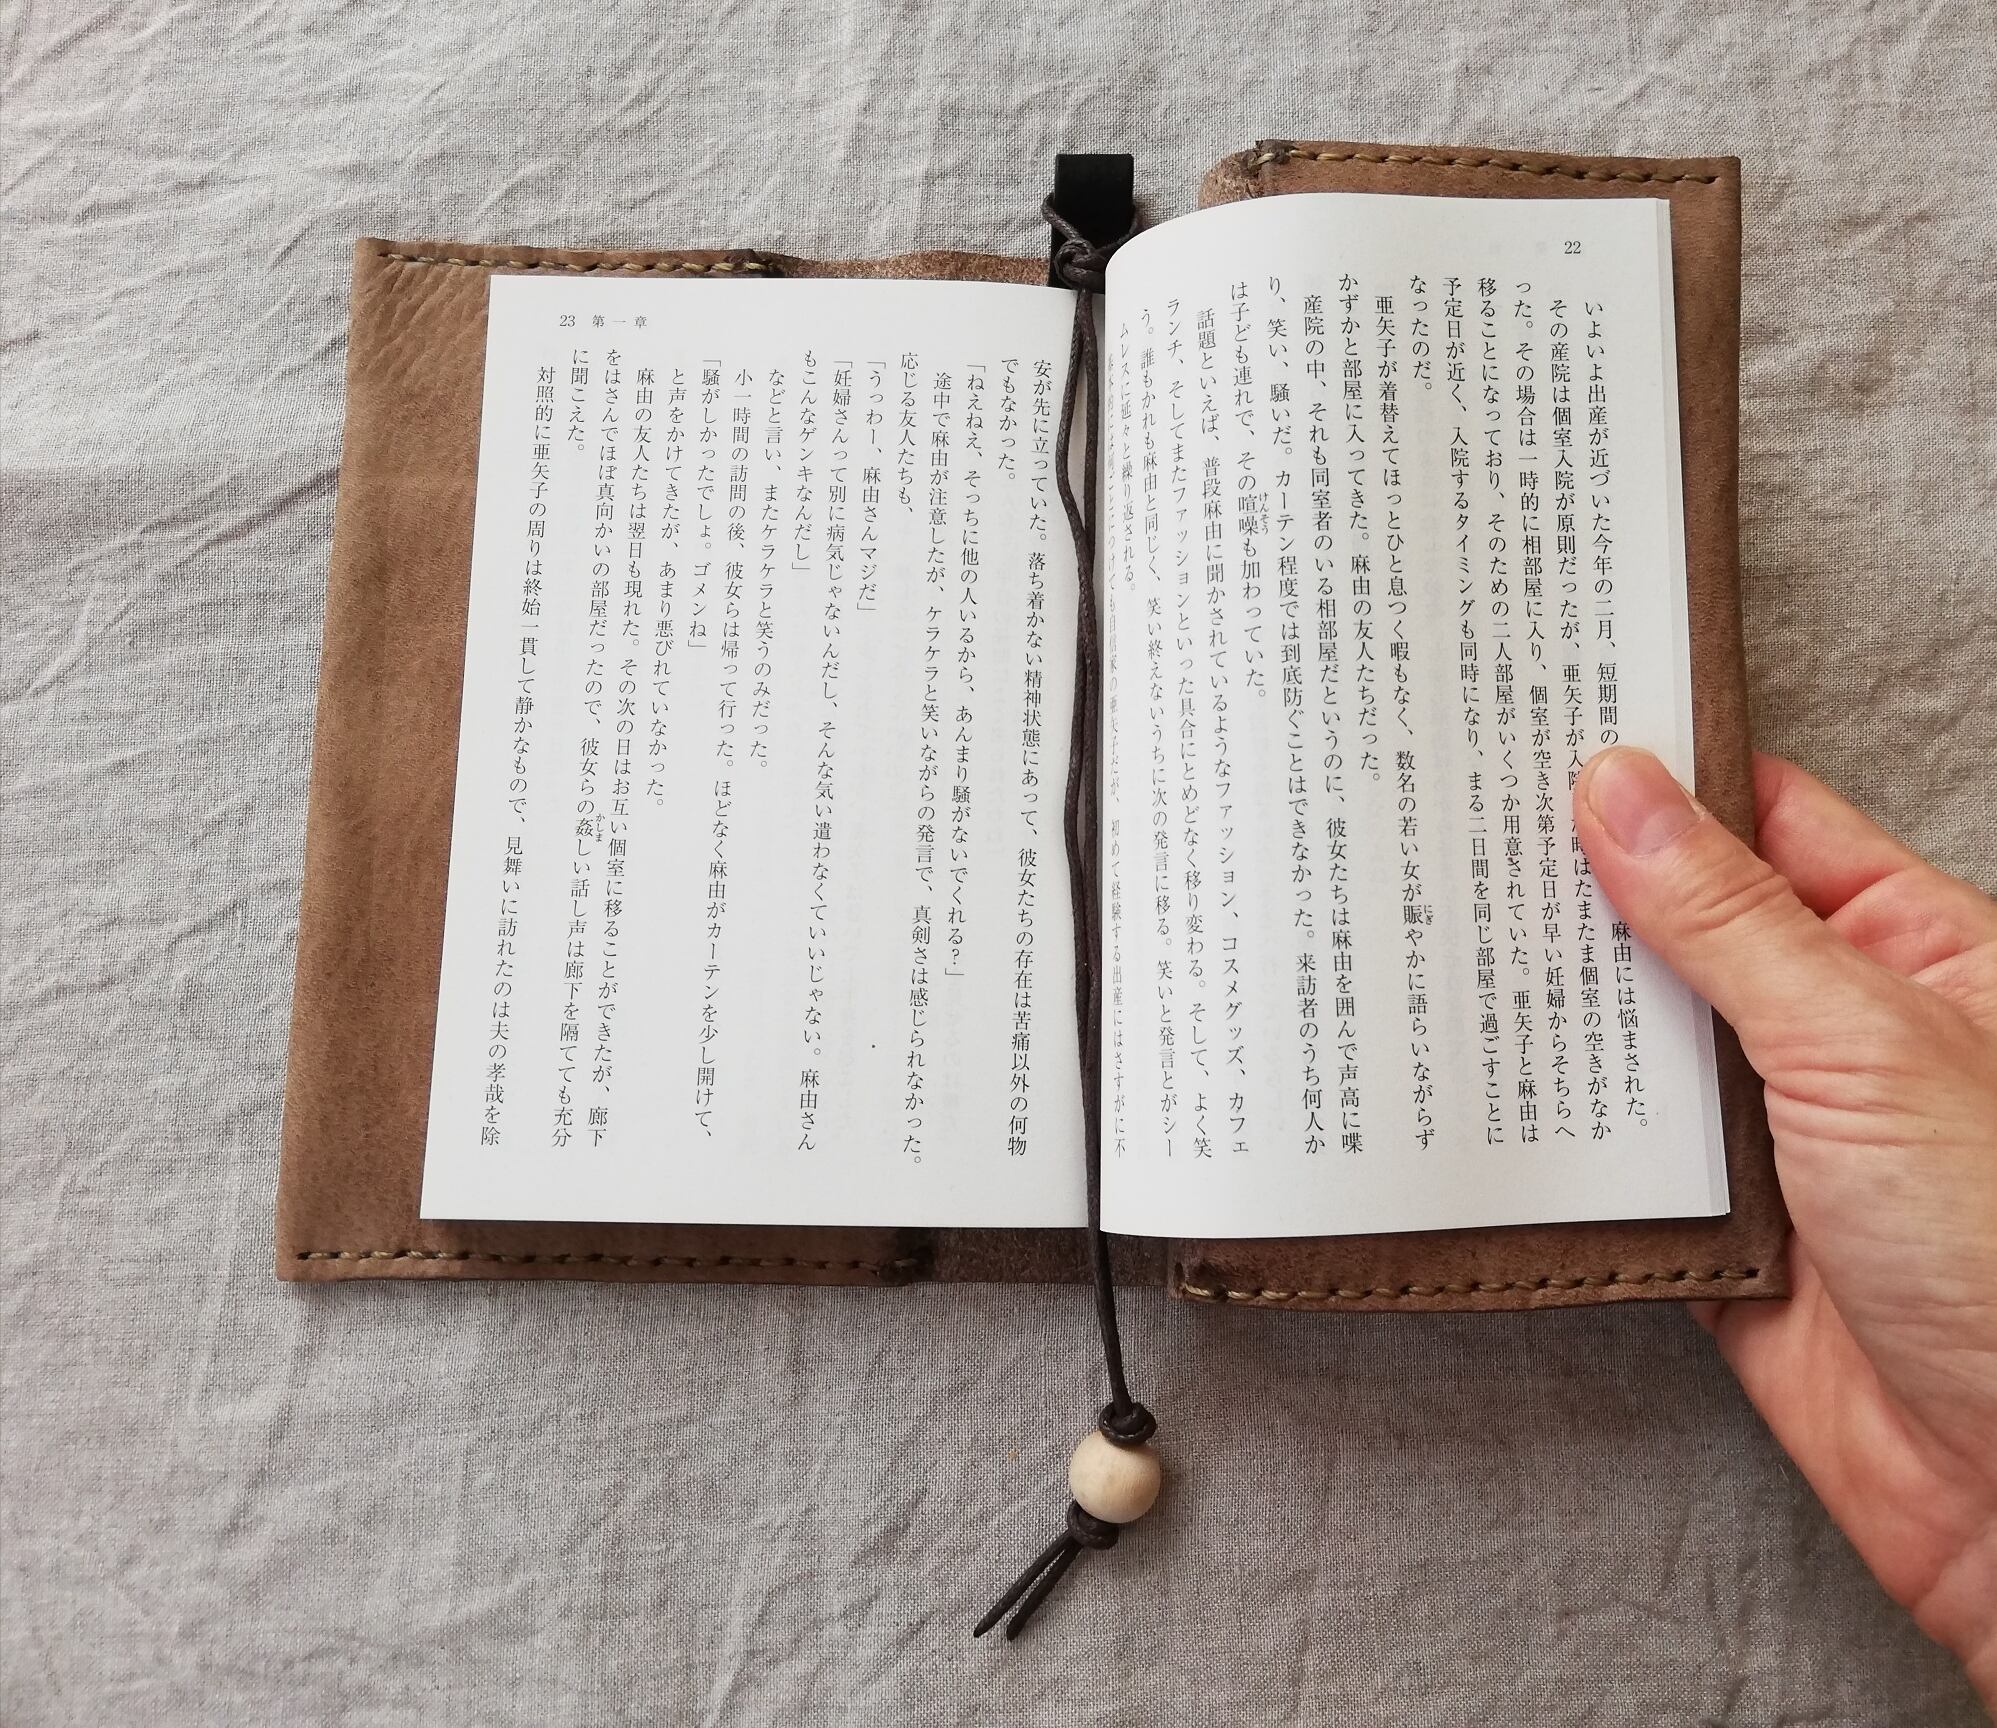 22
いよいよ出産が近づいた今年の二月、短期間の
麻由には悩まされた。
その産院は個室入院が原則だったが、亜矢子が入院
時はたまたま個室の空きがなか
った。その場合は一時的に相部屋に入り、個室が空き次第予定日が早い妊婦からそちらへ
移ることになっており、そのための二人部屋がいくつか用意されていた。亜矢子と麻由は
予定日が近く、入院するタイミングも同時になり、まる二日間を同じ部屋で過ごすことに
なったのだ。
亜矢子が着替えてほっとひと息つく暇もなく、数名の若い女が賑やかに語らいながらず
にぎ
かずかと部屋に入ってきた。麻由の友人たちだった。
産院の中、それも同室者のいる相部屋だというのに、彼女たちは麻由を囲んで声高に喋
り、笑い、騒いだ。カーテン程度では到底防ぐことはできなかった。来訪者のうち何人か
は子ども連れで、その喧噪も加わっていた。
けんそう
話題といえば、普段麻由に聞かされているようなファッション、コスメグッズ、カフェ
ランチ、そしてまたファッションといった具合にとめどなく移り変わる。そして、よく笑
う。誰もかれも麻由と同じく、笑い終えないうちに次の発言に移る。笑いと発言とがシー
ムレスに延々と繰り返される。
基本的には何ごとにつけても自信家の亜矢子だが、初めて経験する出産にはさすがに不
23 第一章
安が先に立っていた。落ち着かない精神状態にあって、彼女たちの存在は苦痛以外の何物
でもなかった。
「ねえねえ、そっちに他の人いるから、あんまり騒がないでくれる?」
途中で麻由が注意したが、ケラケラと笑いながらの発言で、真剣さは感じられなかった。
応じる友人たちも、
「うっわー、麻由さんマジだ」
「妊婦さんって別に病気じゃないんだし、そんな気い遣わなくていいじゃない。麻由さん
もこんなゲンキなんだし」
などと言い、またケラケラと笑うのみだった。
小一時間の訪問の後、彼女らは帰って行った。ほどなく麻由がカーテンを少し開けて、
「騒がしかったでしょ。ゴメンね」
と声をかけてきたが、あまり悪びれていなかった。
麻由の友人たちは翌日も現れた。その次の日はお互い個室に移ることができたが、廊下
をはさんでほぼ真向かいの部屋だったので、彼女らの姦しい話し声は廊下を隔てても充分
かしま
に聞こえた。
対照的に亜矢子の周りは終始一貫して静かなもので、見舞いに訪れたのは夫の孝哉を除